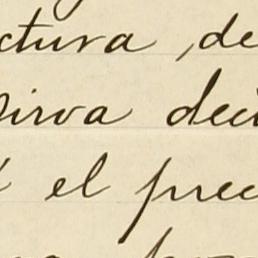 ctura, de
sirva deci
el prec